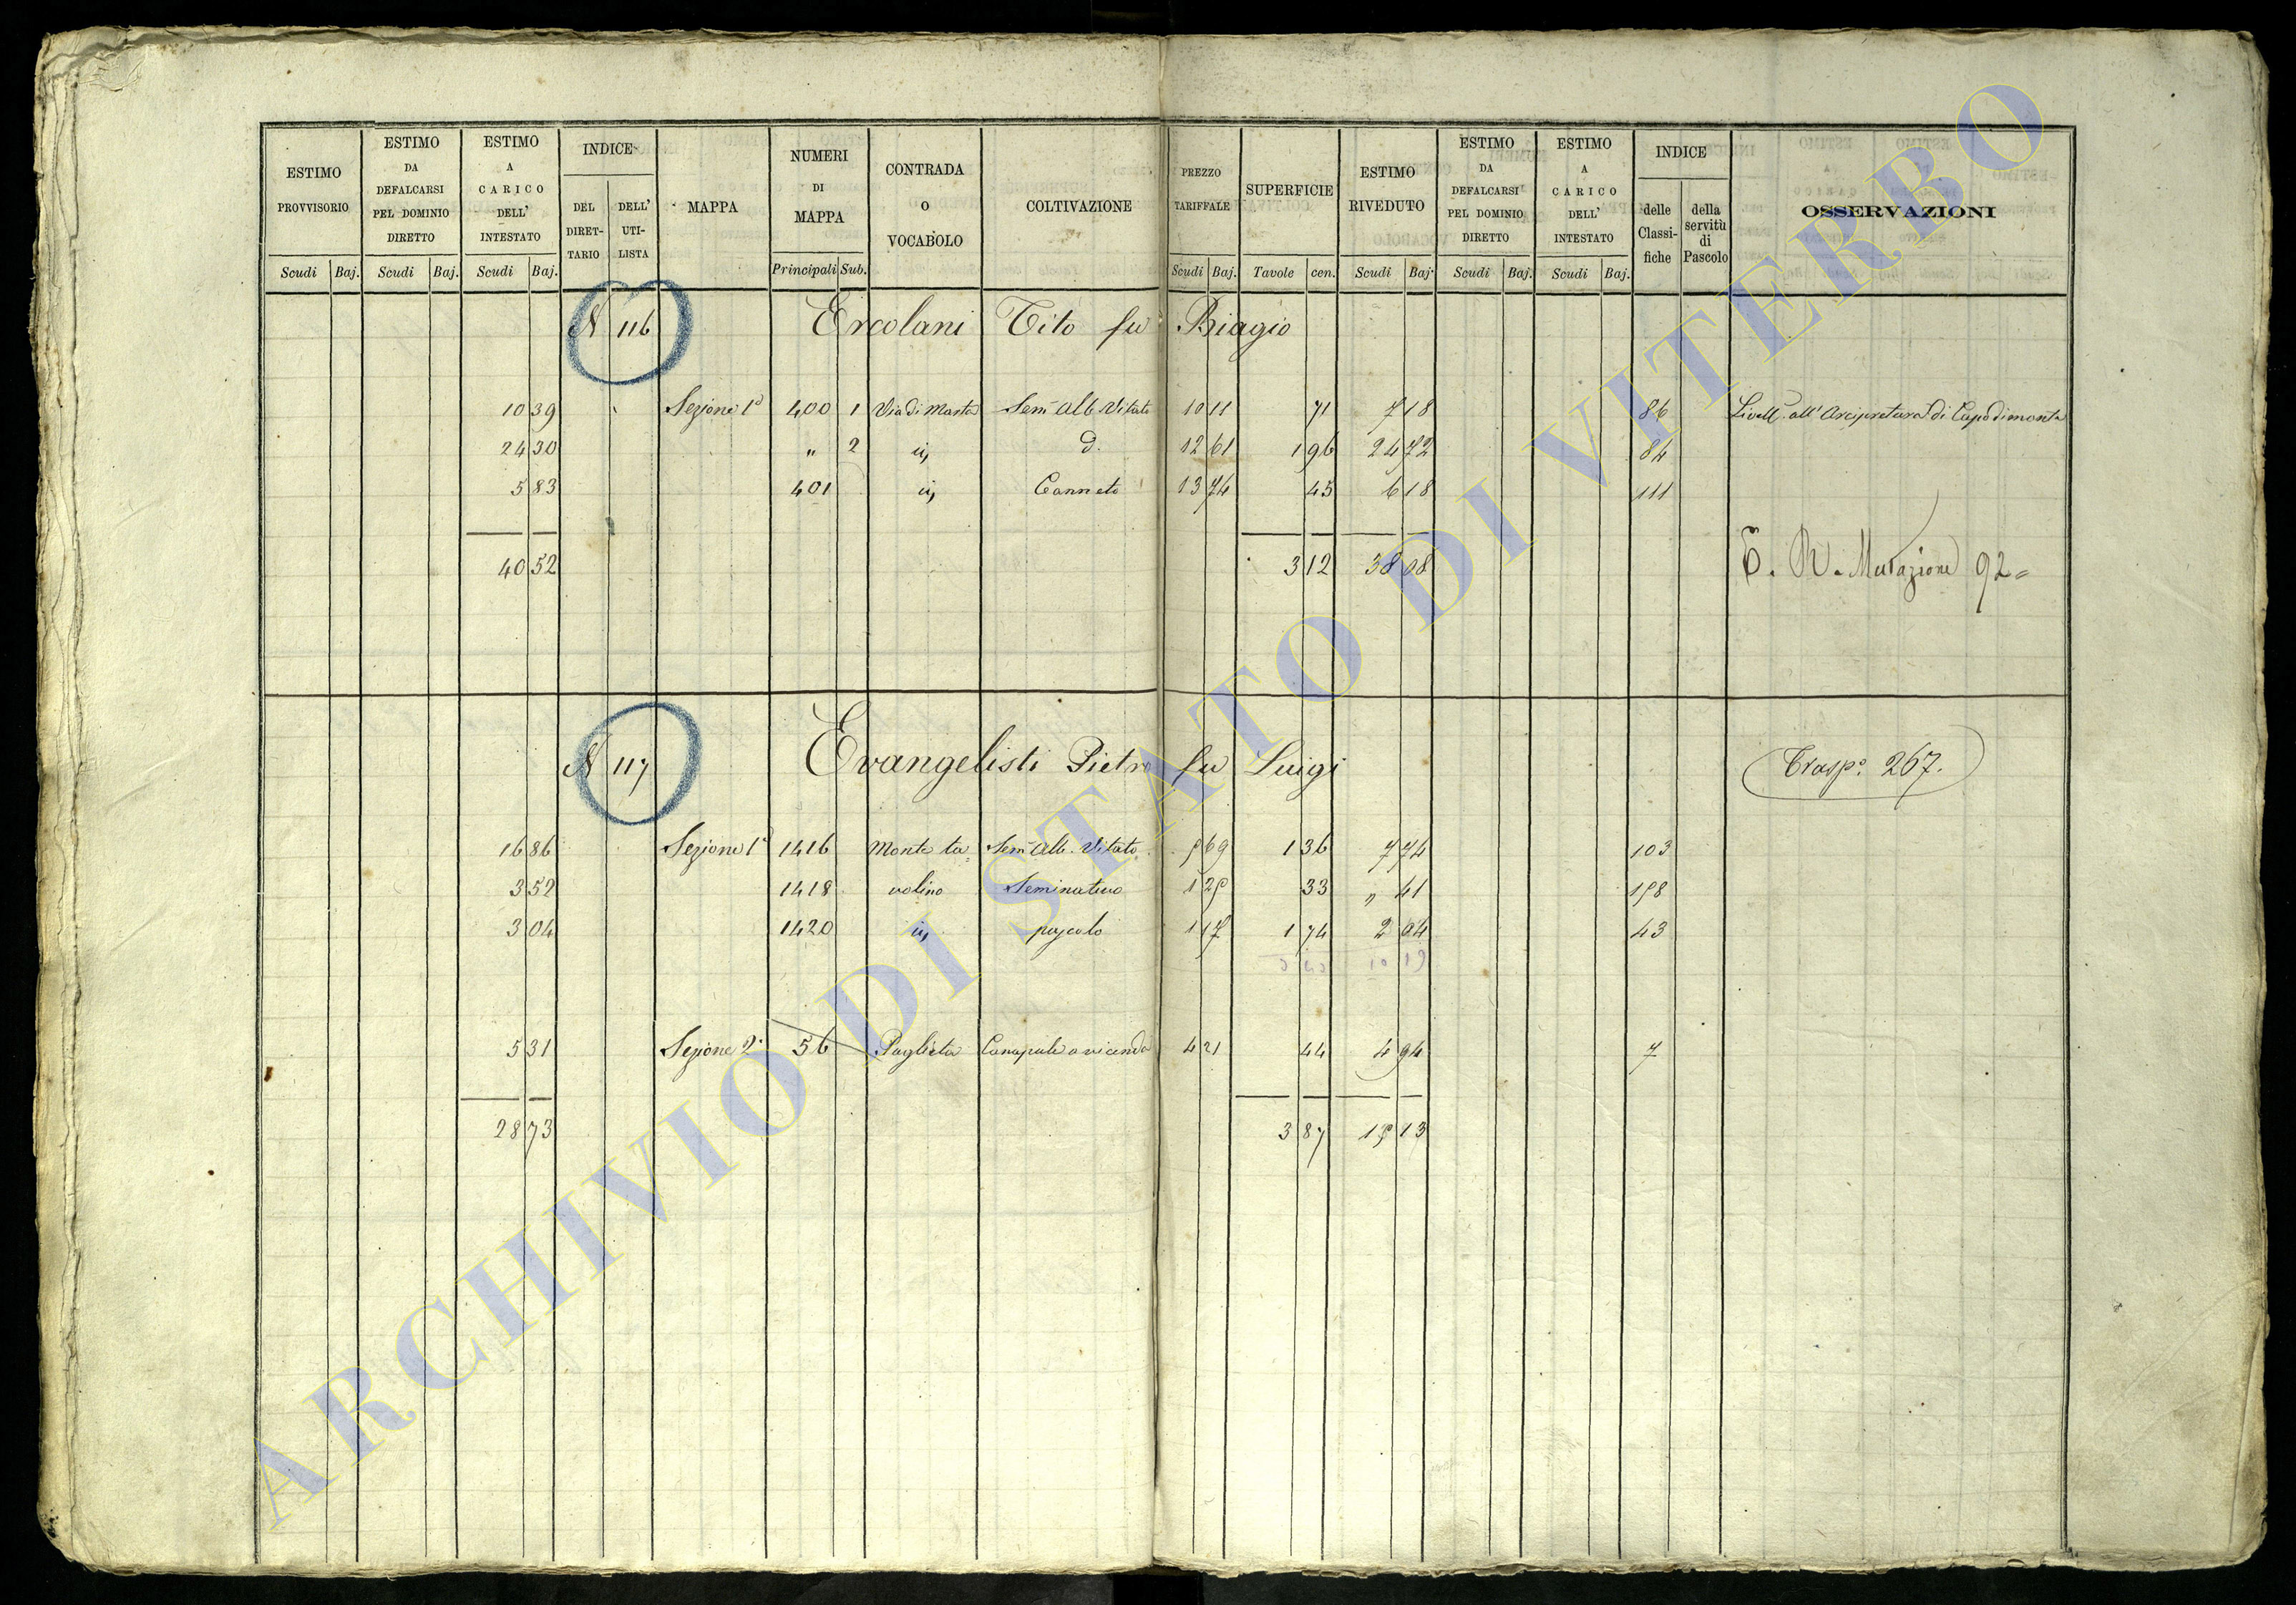 ESTIMO PROVVISORIO | ESTIMO DA DEFALCARSI PEL DOMINIO DIRETTO | ESTIMO A CARICO DELL' INTESTATO | INDICE | MAPPA | NUMERI DI MAPPA | CONTRADA O VOCABOLO | COLTIVAZIONE | PREZZO TARIFFALE | SUPERFICIE | ESTIMO RIVEDUTO | ESTIMO DA DEFALCARSI PEL DOMINIO DIRETTO | ESTIMO A CARICO DELL' INTESTATO | INDICE | OSSERVAZIONI
DEL DIRETTARIO | DELL' UTILISTA | delle Classifiche | della servitù di Pascolo
Scudi | Baj. | Scudi | Baj. | Scudi | Baj. | Principali | Sub. | Scudi | Baj. | Tavole | cen. | Scudi | Baj. | Scudi | Baj. | Scudi | Baj.
N 116 Ercolani Tito fu Biagio
10 39 Sezione 1ª 400 1 Via di Marta Semº Alb. Vitato 10 11 71 7 18 86 Livellº all' Arcipretura di Capodimonte
24 30 " 2 ii, d. 12 61 1 96 24 72 84
5 83 401 ii, Canneto 13 74 45 6 18 111
40 52 3 12 38 08 E. R. Mutazione 92=
N 117 Evangelisti Pietro fu Luigi Traspº 267.
16 86 Sezione 1ª 1416 Monte ta= Semº Alb. Vitato 5 69 1 36 7 74 103
3 52 1418 volino Seminativo 1 25 33 " 41 158
3 04 1420 ii, pascolo 1 17 1 74 2 04 43
3 43 10 19
5 31 Sezione 2ª 56 Paglieta Canapule a vicenda 4 21 44 4 94 7
28 73 3 87 15 13
ARCHIVIO DI STATO DI VITERBO